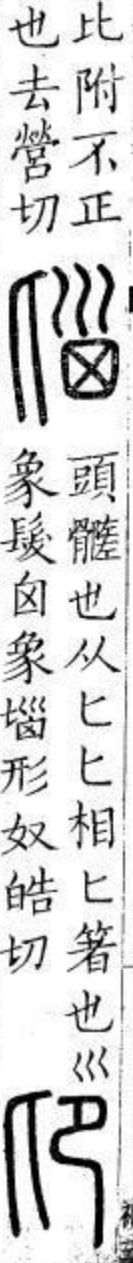 比附不正
也去營切
匘
頭𩪦也从匕匕相匕箸也巛
象髮囟象匘形奴皓切
卬